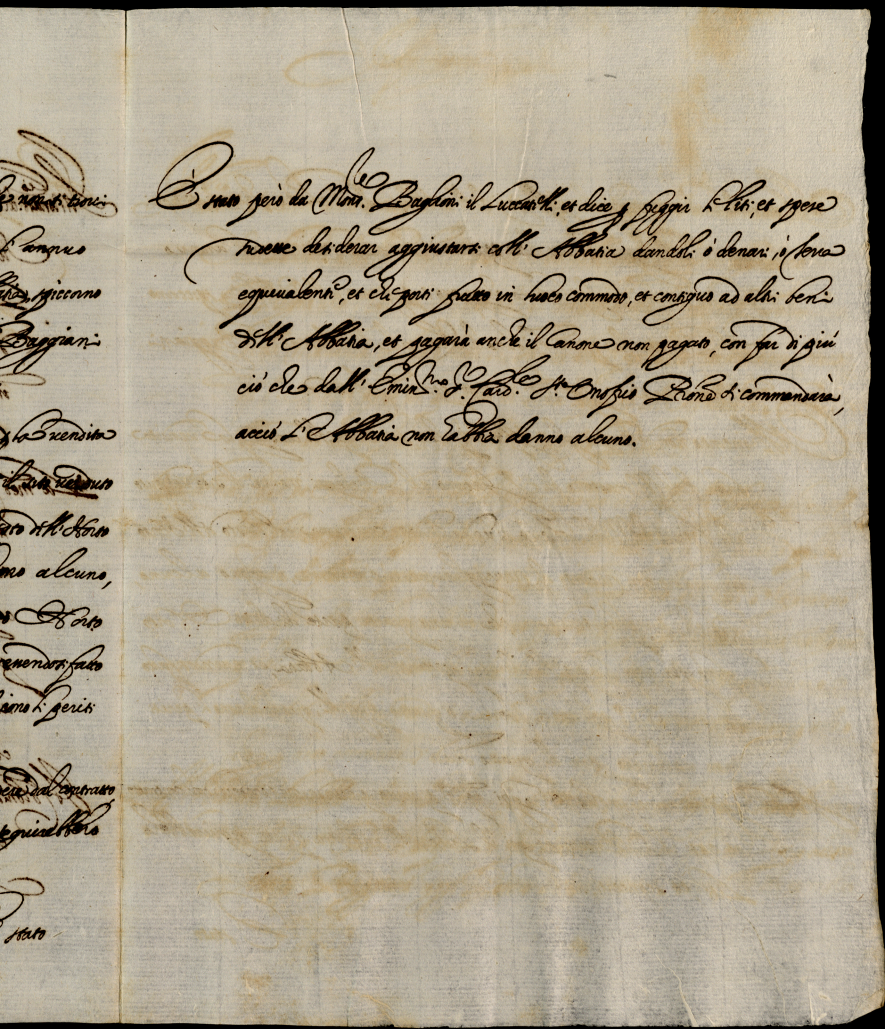 non si trovi
anzuo
spiccorno
Baggiani
la vendita
il sito venduto
dell'Horto
alcuno,
Horto
essendosi fatto
periti
dal contratto,
seguirebbero
stato
È stato però da Mons.re Baglioni il Luccatelli, et dice p fuggir le liti, et spese
desiderar aggiustarsi coll'Abbatia dandoli ò denari, ò terra
equivalente, et che porti frutto in luoco commodo, et contiguo ad altri beni
dell'Abbatia, et pagarà anche il Canone non pagato, con far di più
ciò che dall'Emin.mo S.r Card.le S.to Onofrio Prone si commandarà,
acciò l'Abbatia non habbia danno alcuno.